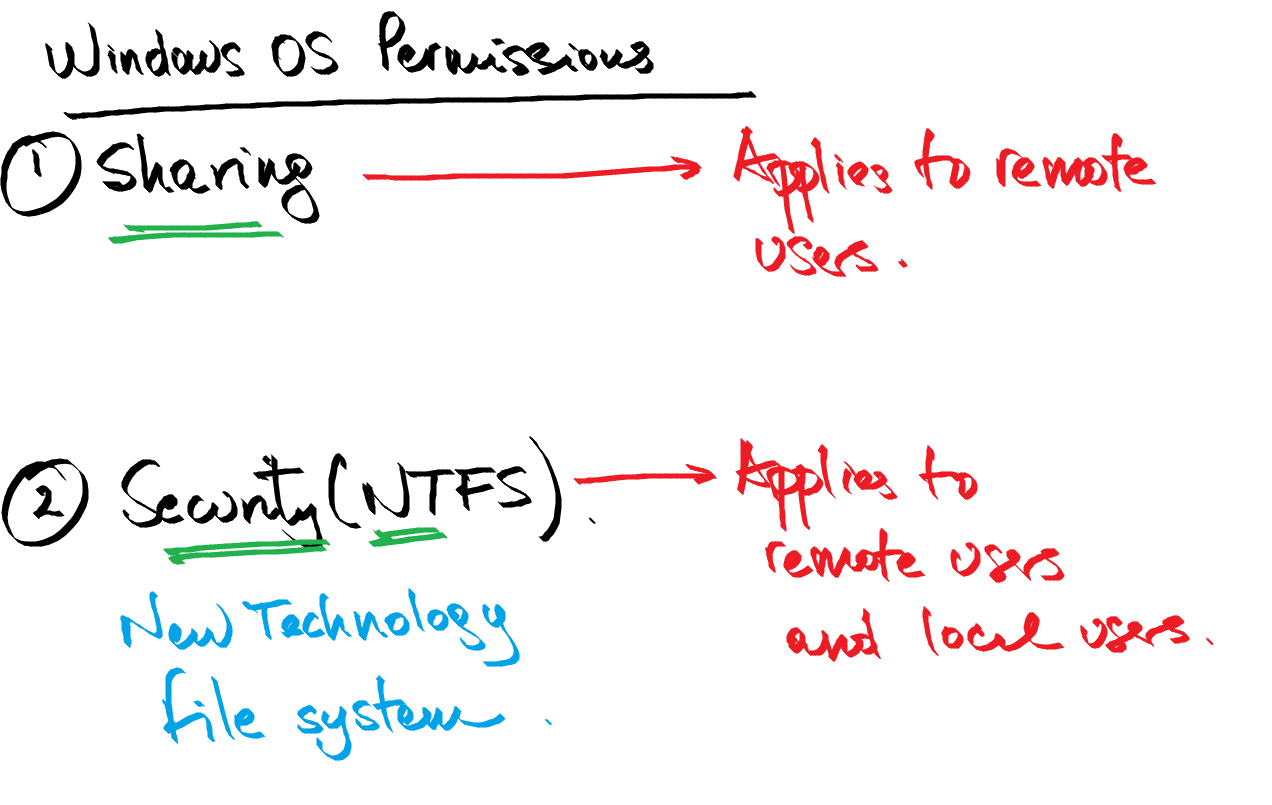 Windows OS Permissions
1 Sharing → Applies to remote
users.
2 Security (NTFS). → Applies to
remote users
and local users.
New Technology
file system.